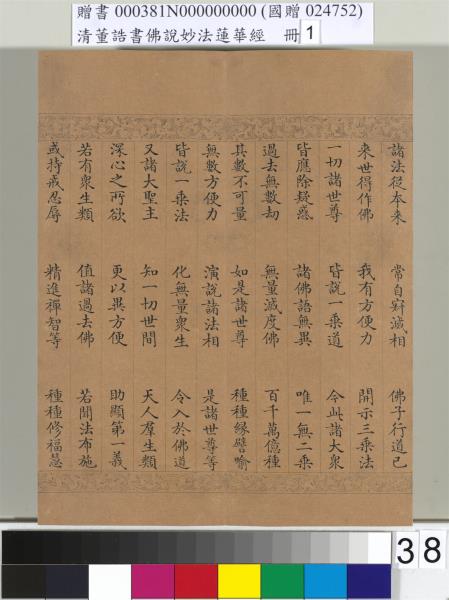 贈書 000381N000000000 (國贈 024752)
清董誥書佛說妙法蓮華經 冊 1
諸法從本來 常自寂滅相 佛子行道已
來世得作佛 我有方便力 開示三乘法
一切諸世尊 皆說一乘道 今此諸大眾
皆應除疑惑 諸佛語無異 唯一無二乘
過去無數劫 無量滅度佛 百千萬億種
其數不可量 如是諸世尊 種種緣譬喻
無數方便力 演說諸法相 是諸世尊等
皆說一乘法 化無量眾生 令入於佛道
又諸大聖主 知一切世間 天人羣生類
深心之所欲 更以異方便 助顯第一義
若有眾生類 值諸過去佛 若聞法布施
或持戒忍辱 精進禪智等 種種修福慧
38